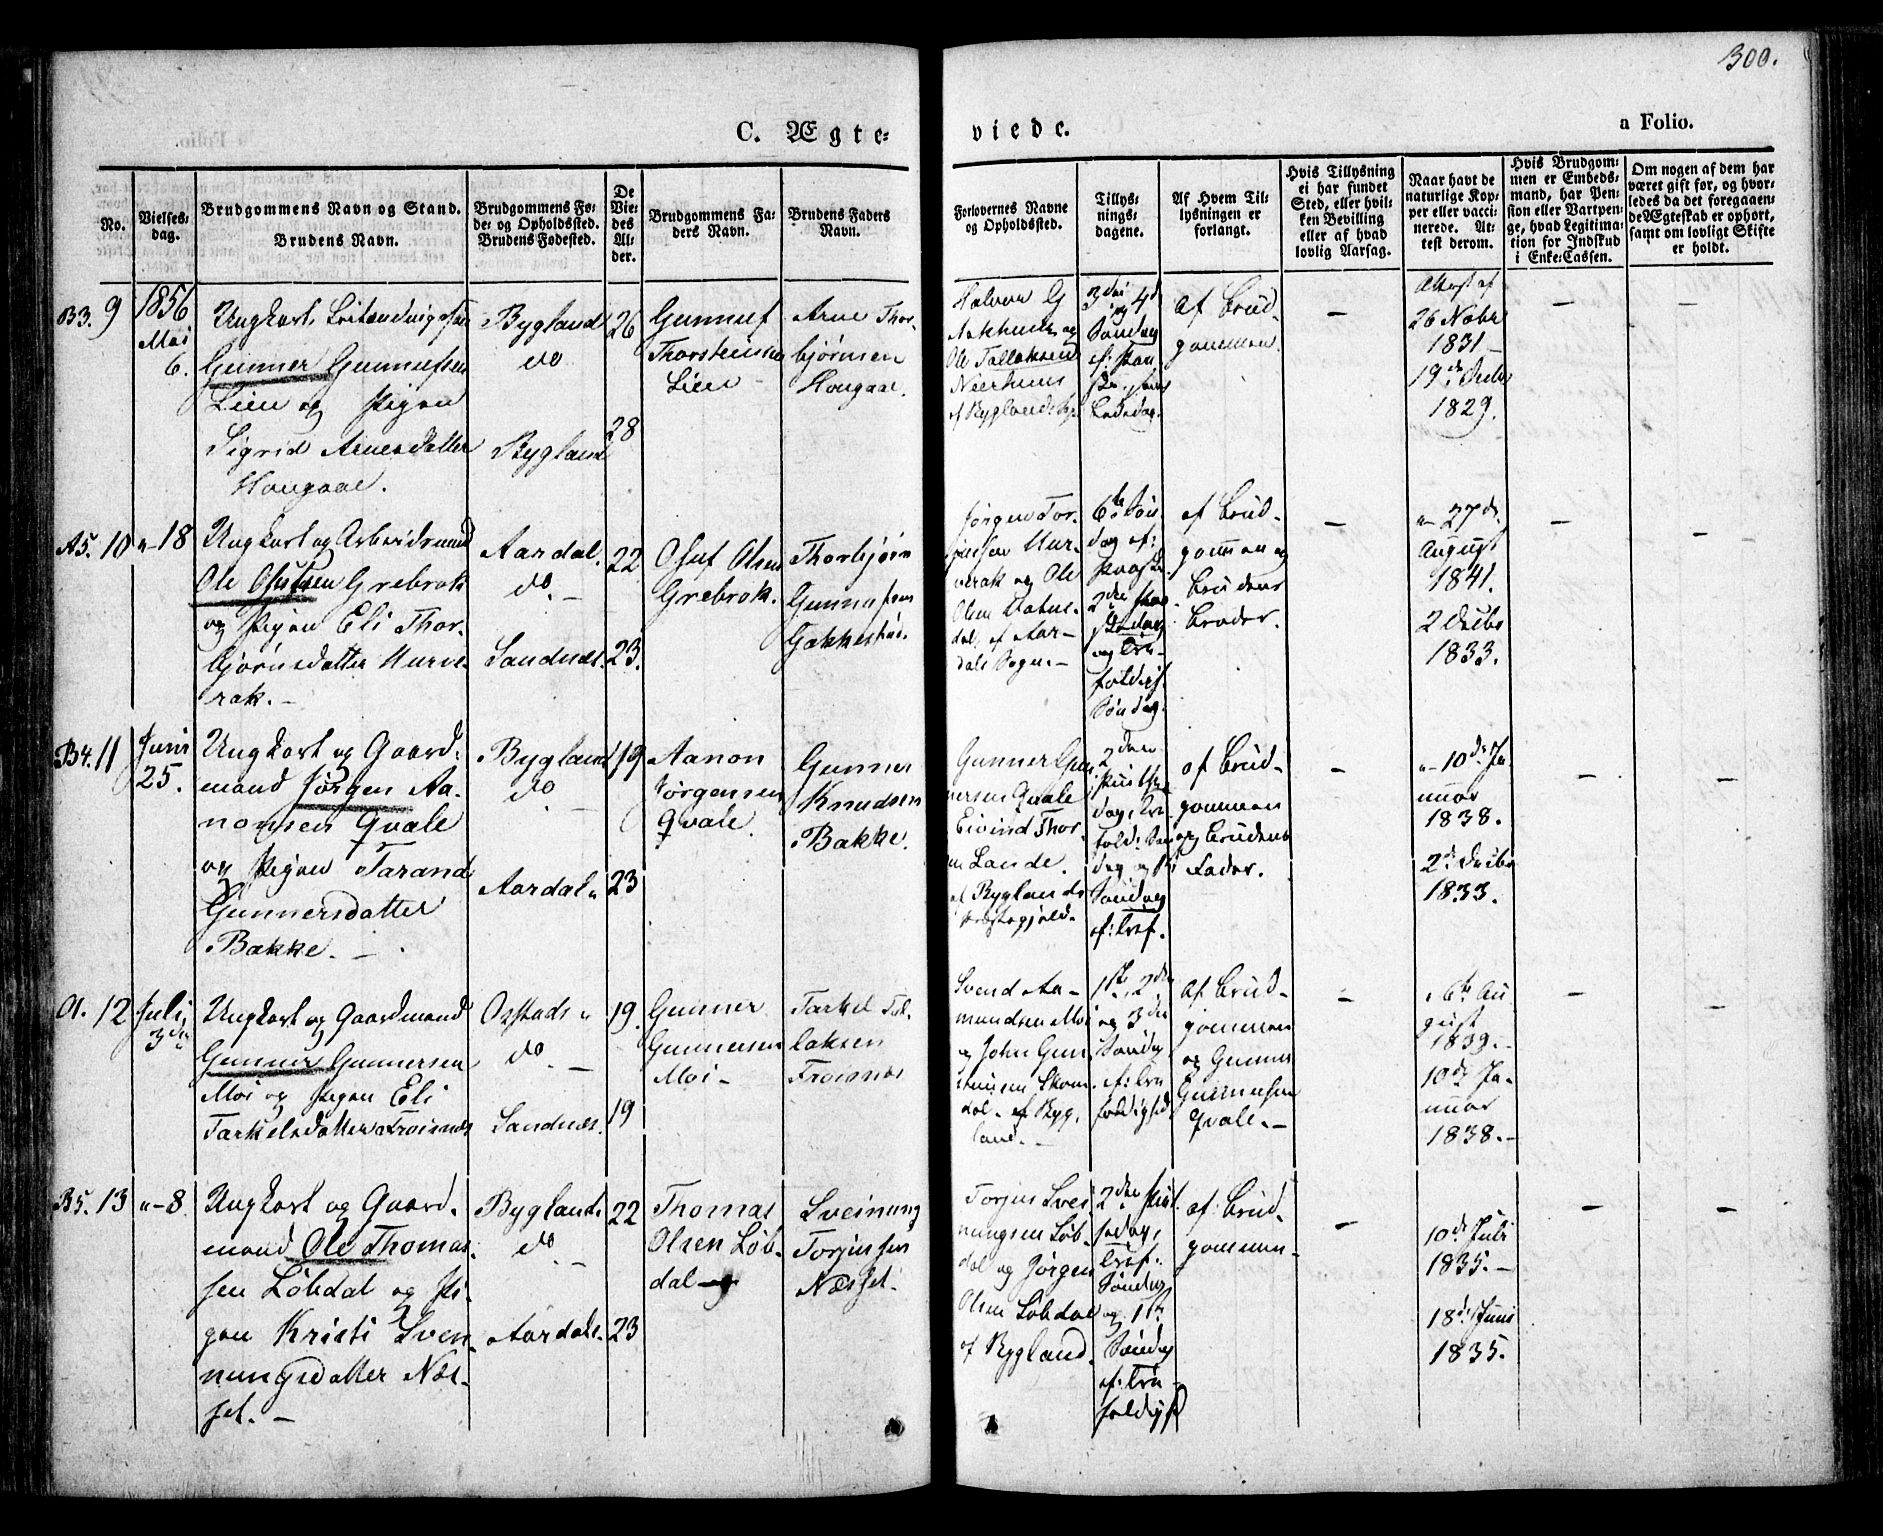 300.
C. Ægte=
viede.
a Folio.
No.
Vielses=
dag.
Brudgommens Navn og Stand.
Brudens Navn.
Brudgommens Fø=
de= og Opholdssted.
Brudens Fødested.
De
Vie=
des
Al=
der.
Brudgommens Fa=
ders Navn.
Brudens Faders
Navn.
Forlovernes Navne
og Opholdssted.
Tillys=
nings=
dagene.
Af Hvem Til=
lysningen er
forlangt.
Hvis Tillysning
ei har fundet
Sted, eller hvil=
ken Bevilling
eller af hvad
lovlig Aarsag.
Naar havt de
naturlige Kop=
per eller vacci=
nerede. At=
test derom.
Hvis Brudgom=
men er Embeds=
mand, har Pen=
sion eller Vartpen=
ge, hvad Legitima=
tion for Indskud
i Enke=Cassen.
Om nogen af dem har
været gift før, og hvor=
ledes da det foregaaen=
de Ægteskab er ophørt,
samt om lovligt Skifte
er holdt.
B3. 9
1856
Mai
6.
Ungkarl
Gunner Gunnufsen
Lien og Pigen
Sigrid Arnesdatter
Hougaae.
Bygland
do
Bygland
26
28
Gunnuf
Thorsteinsen
Lien
Arne Thor-
bjørnsen
Hougaae.
Halvor G
og
Ole Tallaksen
Neerhuus
3die og 4de
Søndag
af Brud-
gommen
Attest af
26 Nobr
1831
19de
1829.
A5. 10
"-18
Ungkarl og Arbeidsmand
Ole Osufsen Grebrok
og Pigen Eli Thor-
bjørnsdatter Hurve-
rak.-
Aardal.
do.-
Sandnæs.
22
23.
Osuf Olsen
Grebrok.
Thorbjørn
Gunnufsen
Jørgen Tor-
Hur-
verak og Ole
Olsen
dal, af Aar-
dals Sogn.-
6te Søn-
dag ef:
Paaske.
2den
og Tre-
foldigh.
Søndag.
af Brud-
gommen og
Brudens
Broder.
"- 27de
August
1841.
2 Decbr
1833.
B4. 11
Juni
25.
Ungkarl og Gaard=
mand Jørgen Aa-
nonsen Qvale
og Pigen Tarand
Gunnersdatter
Bakke.-
Bygland
do
Aardal
19
23
Aanon
Jørgensen
Qvale.
Gunner
Knudsen
Bakke.
Gunner Gun
nersen Qvale
Eivind Thor-
Lande.
af Byglands
Præstegjeld.
2den
Søndag
ef: Tref.
af Brud-
gommen
og Brudens
Fader.
"- 10de Ja-
nuar
1838.
2de Decbr
1833.
A. 12
Juli
3die
Ungkarl og Gaardmand
Gunner Gunnersen
Moi og Pigen Eli
Tarkelsdatter Froisnæs
Ostads
do.-
Sandnæs.
19.
19
Gunner
Gunnersen
Moi-
Tarkel Tal-
laksen
Froisnæs
Svend Aa-
mundsen Moi
og John Gun
Skom-
dal. af Byg-
land.-
1ste, 2den
og 3die
Søndag
ef: Tre-
foldighed.
af Brud-
gommen
og Gunner
Gunnersen
Qvale.-
6te Au-
gust
1839.-
10de Ja-
nuar
1838.-
B5. 13
"-8.
Ungkarl og Gaard-
mand Ole Thomas-
sen Løbdal og Pi-
gen Kristi Svein-
nungsdatter Næs-
set.-
Bygland.
do.-
Aardals.
22
23
Thomas
Olsen Løb-
dal
Sveinung
Torjussen
Næsset.
Torjus Svei-
nungsen Løb-
dal og Jørgen
Olsen Løbdal
af Bygland.
2den Pint-
sedag,
Tref.
Søndag
og 1ste
Søndag
ef: Tre-
foldigh.
af Brud-
gommen-
10de Juli
1835.-
18de Juni
1835.